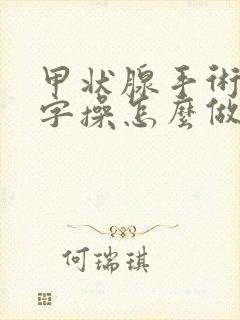 甲状腺手術
字操怎麼做
何瑞琪